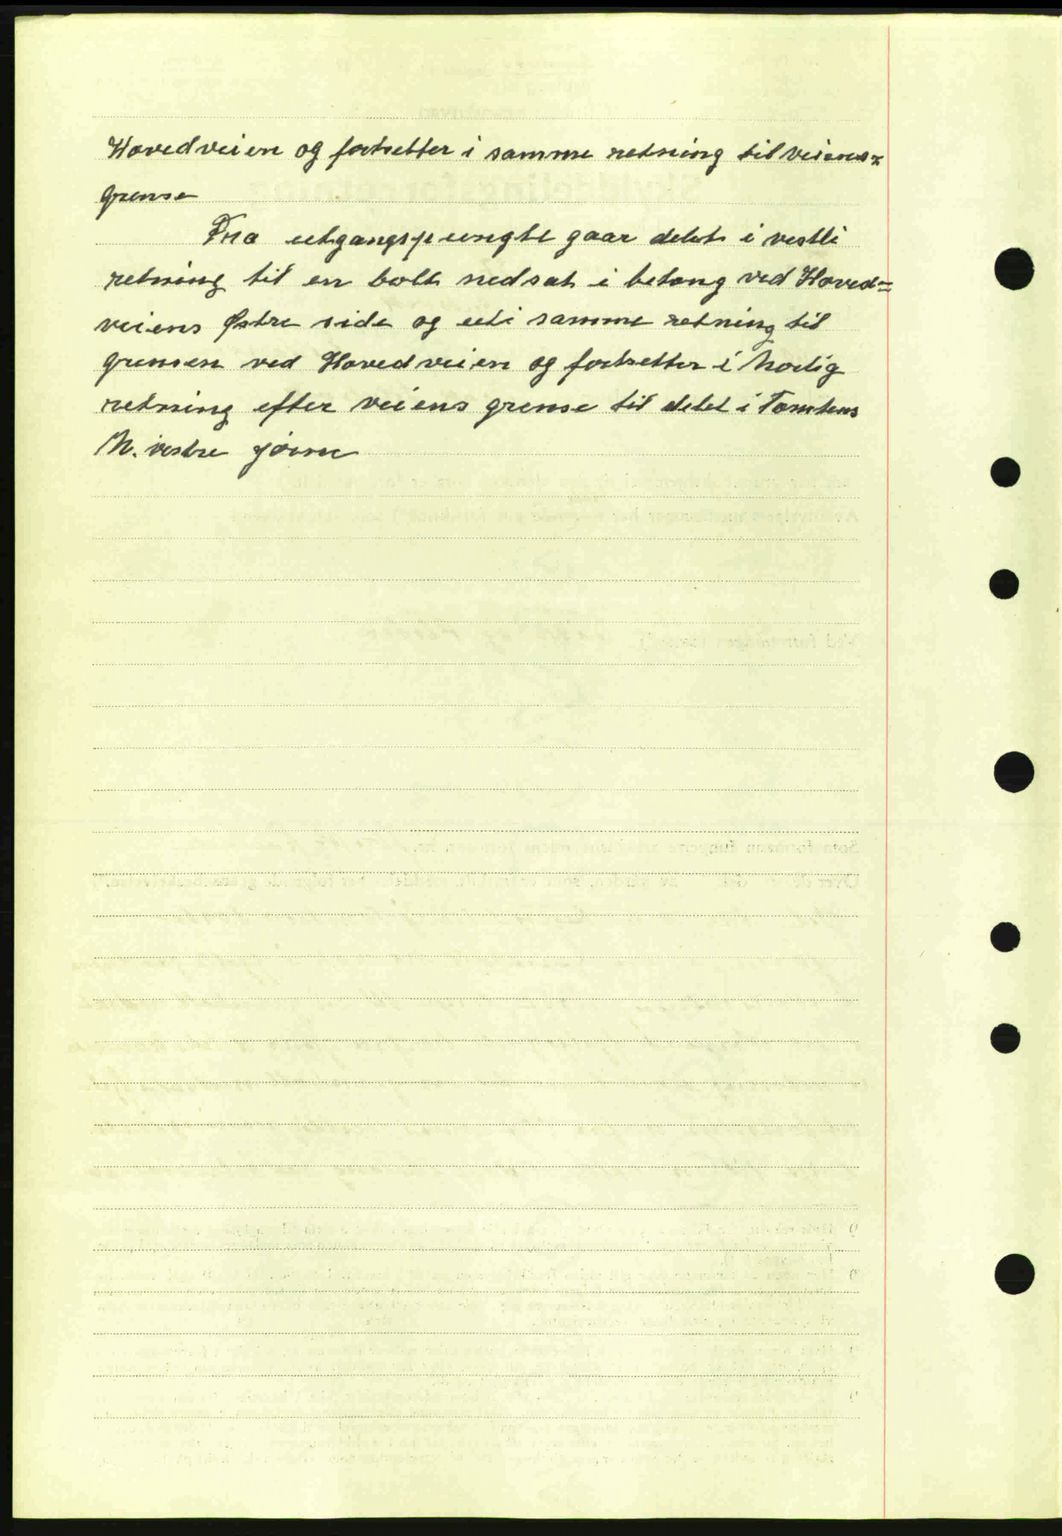 Hovedveien og fortsetter i samme retning til veiens=
grense
Fra utgangspungte gaar delet i vestli
retning til en bolt nedsat i betong ved Hoved=
veiens Østre side og uti samme retning til
grensen ved Hovedveien og fortsetter i Nordig
retning efter veiens grense til delet i Tomtens
N. vestre jørne